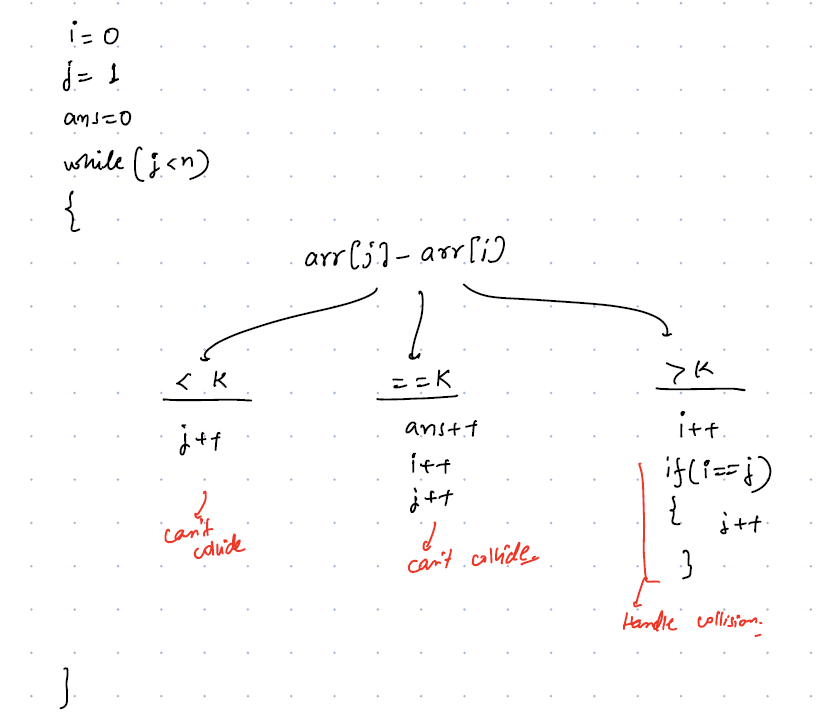 i = 0
j = 1
ans=0
while (j<n)
{
arr[j] - arr[i]
< K
j++
can't
collide
==K
ans++
i++
j++
can't collide.
>K
i++
if(i==j)
{
j++
}
Handle collision.
}